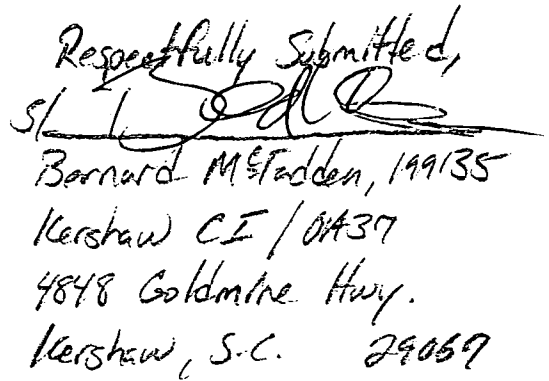 Respectfully Submitted,
s/
Bernard McFadden, 199135
Kershaw CI / OA37
4848 Goldmine Hwy.
Kershaw, S.C. 29067